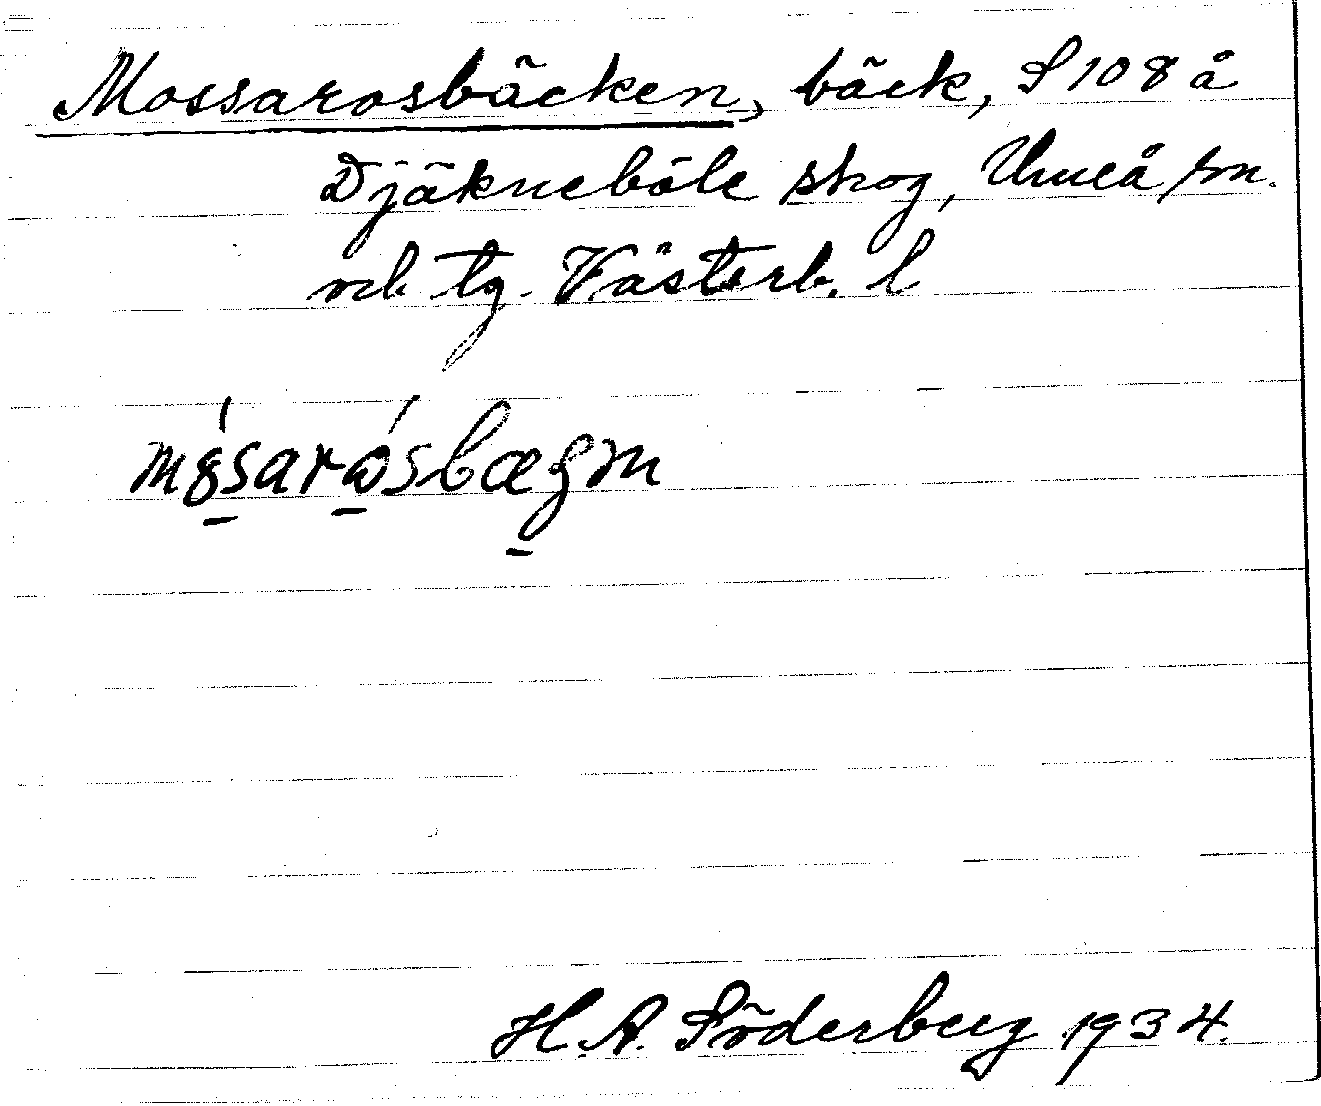 Mossarosbäcken, bäck, S 108 å
Djäkneböle skog, Umeå sn.
och tg. Västerb. l
mɞ́sarǿsbægm
H. A. Söderberg 1934.